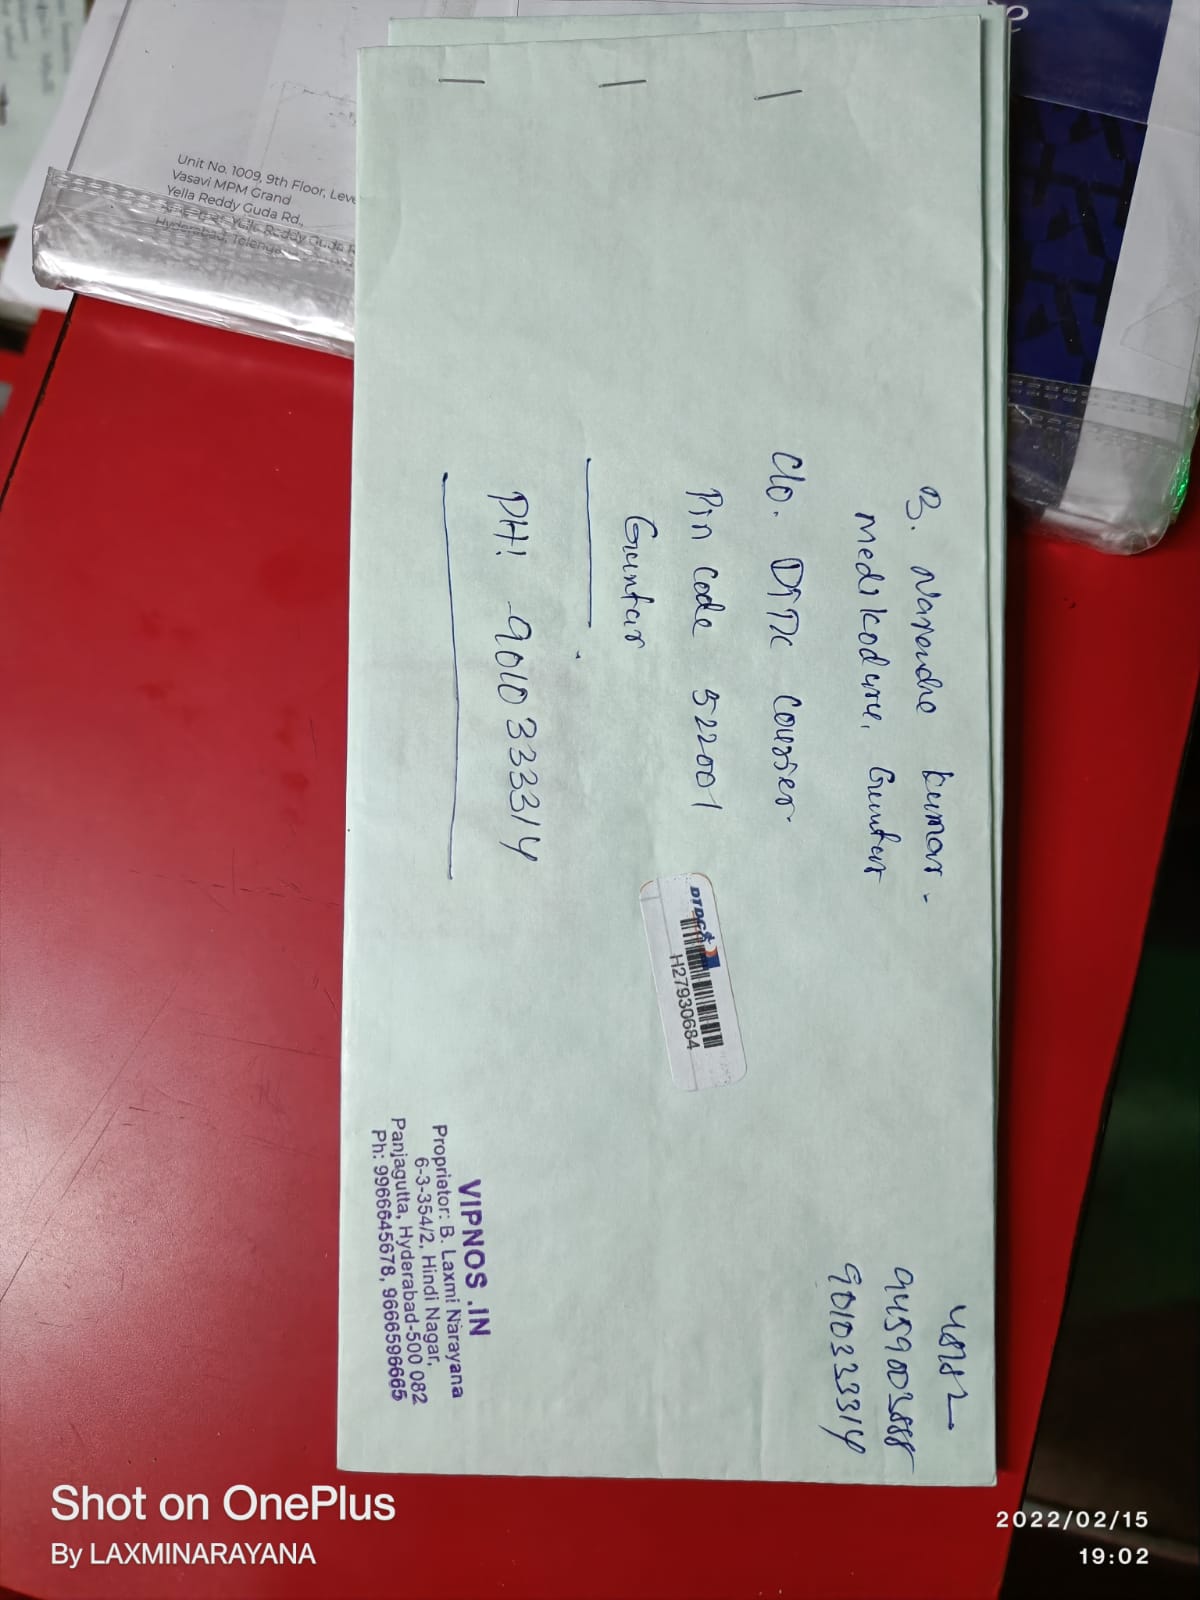 B. Narendra Kumar.
Medikoduru, Guntur
C/o. DTDC Courier
Pin Code 522001
Guntur
PH: 9010333314
DTDC
H27930684
VIPNOS .IN
Proprietor: B. Laxmi Narayana
6-3-354/2, Hindi Nagar,
Panjagutta, Hyderabad-500 082
Ph: 9966645678, 9666596665
9459003888
9010333314
Unit No. 1009, 9th Floor, Leve
Vasavi MPM Grand
Yella Reddy Guda Rd.,
Yella Reddy Guda
Hyderabad, Telenga
Shot on OnePlus
By LAXMINARAYANA
2022/02/15
19:02